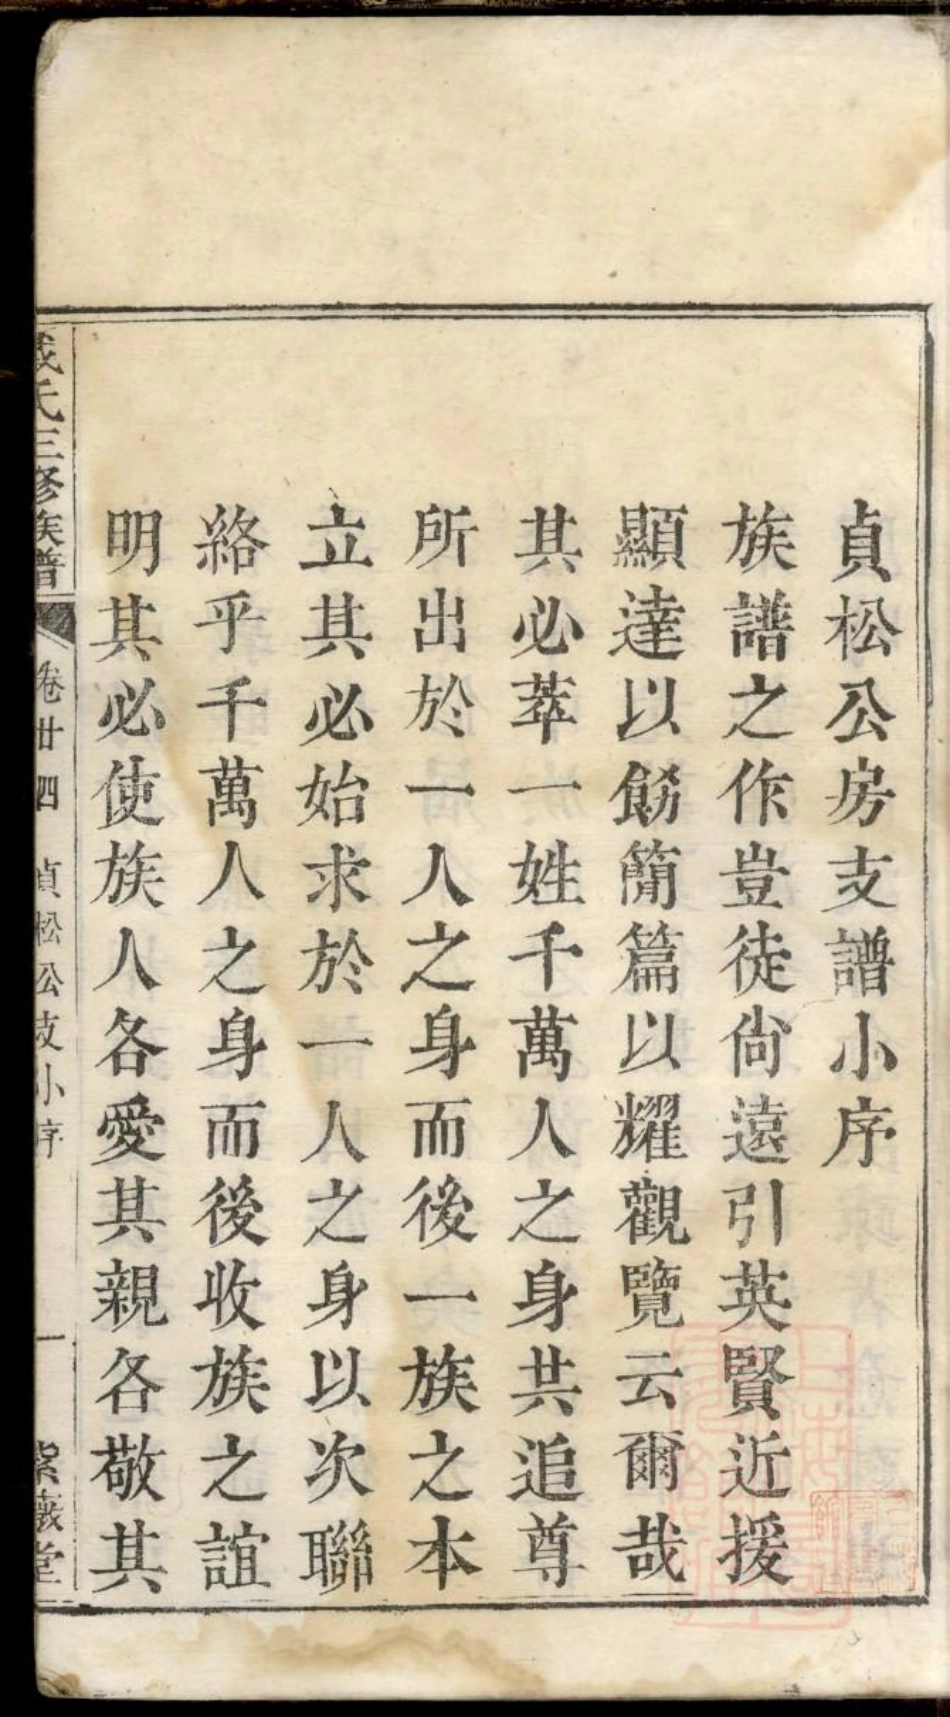 貞松公房支譜小序
族譜之作豈徒尙遠引英賢近援
顯達以餝簡篇以耀觀覽云爾哉
其必萃一姓千萬人之身共追尊
所出於一人之身而後一族之本
立其必始求於一人之身以次聯
絡乎千萬人之身而後收族之誼
明其必使族人各愛其親各敬其
氏三修族譜 卷廿四 貞松公支小序 一 紫薇堂